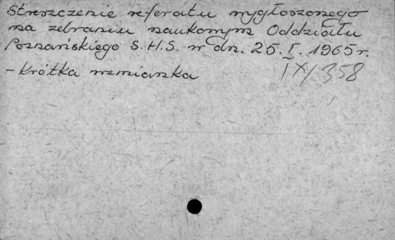 Streszczenie referatu wygłoszonego
na zebraniu naukowym Oddziału
Poznańskiego S.H.S. w dn. 25.I.1965 r.
- Krótka wzmianka IX/358